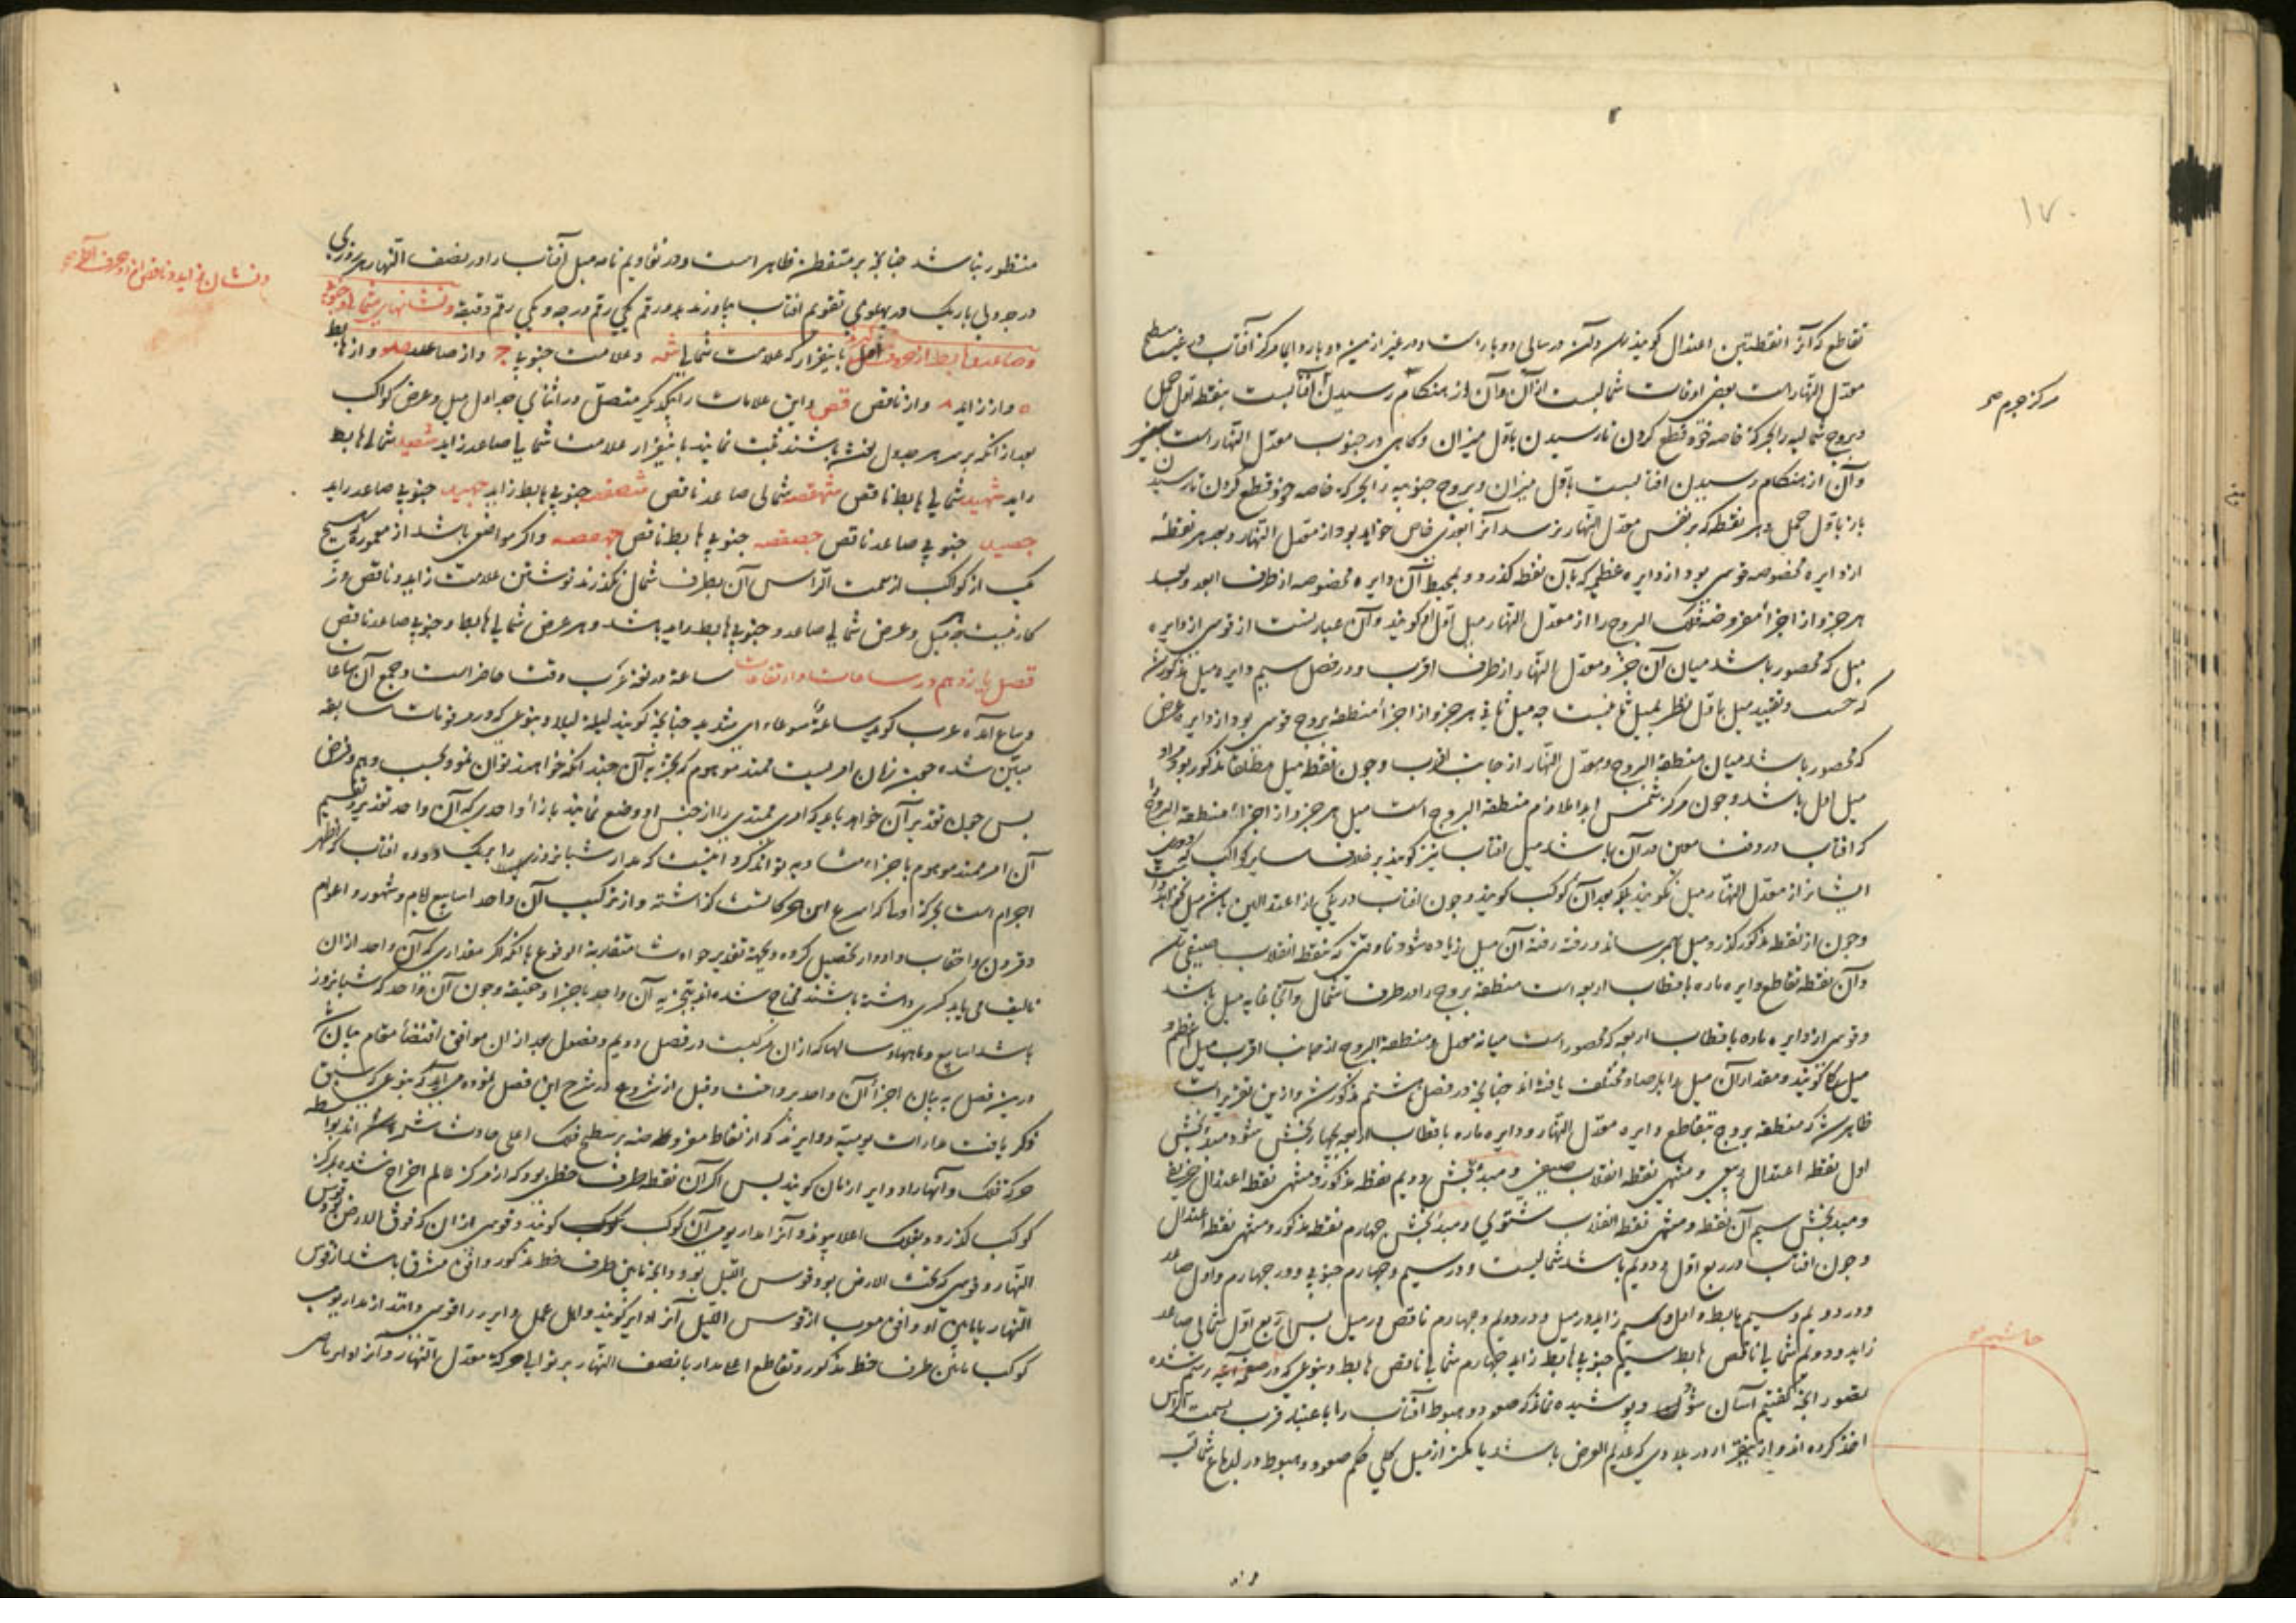 ۱۷۰
تقاطع که آنرا نقطتین اعتدال گویند و آن در سالی دو بار است و در غیر ازین دو بار دایما مرکز آفتاب در غیر سطح
معدل النهار است بعضی اوقات شمالیست از آن و آن از هنگام رسیدن آفتابست بنقطه اول حمل
و بروج شمالیه را بحرکة خاصه خود قطع کردن تا رسیدن باول میزان و گاهی در جنوب معدل النهار است
و آن از هنگام رسیدن افتابست باول میزان و بروج جنوبیه را بحرکه خاصه خود قطع کردن تا رسیدن
باز باول حمل و هر نقطه که بر نفس معدل النهار نرسد آنرا بعدی خاص خواهد بود از معدل النهار و بعد هر نقطهٔ
از دایره مخصوصه قوسی بود از دایره عظمی که بآن نقطه گذرد و بمحیط آن دایره مخصوصه از طرف ابعد و بعد
هر جزو از اجزأ مفروضه فلک البروج را از معدل النهار میل اول گویند و آن عبارتست از قوسی از دایره
میل که محصور باشد میان آن جزو و معدل النهار از طرف اقرب و در فصل سیم دایره میل مذکور شد
که حسب و تقیید میل باول نظر بمیل ثانیست چه میل ثانی هر جزو از اجزأ منطقه بروج قوسی بود از دایره عرض
که محصور باشد میان منطقة البروج و معدل النهار از جانب اقرب و چون لفظ میل مطلقا مذکور بود مراد
میل اول باشد و چون مرکز شمس ابدا ملازم منطقة البروج است میل هر جزو از اجزأ منطقة البروج
که افتاب در وقت معین در آن باشد میل افتاب نیز گویند بر خلاف سایر کواکب که
ایشانرا از معدل النهار میل نگویند بلکه بعد آن کوکب گویند و چون افتاب در یکی از اعتدالین باشد میل نخواهد
و چون از نقطه مذکور گذرد میل بهم رساند و رفته رفته آن میل زیاده شود تا وقتی که بنقطه انقلاب صیفی رسد
و آن نقطه تقاطع دایره ماره باقطاب اربعه است منطقه بروج را در طرف شمال و آنجا غایه میل باشد
و قوسی از دایره ماره باقطاب اربعه که محصور است میانه معدل و منطقة البروج از جانب اقرب میل اعظم و
میل کلی گویند و مقدار آن میل را برصاد مختلف یافته اند چنانچه در فصل هشتم مذکور شد و ازین تقریر است
ظاهر شد که منطقه بروج بتقاطع دایره معدل النهار و دایره ماره باقطاب اربعه بچهار بخش شود مبدأ بخش
اول نقطه اعتدال ربیعی و منتهی نقطه انقلاب صیفی و مبدأ بخش دویم نقطه مذکور و منتهی نقطه اعتدال خریفی
و مبدأ بخش سیم آن نقطه و منتهی نقطه انقلاب شتوی و مبدأ بخش چهارم نقطه مذکور و منتهی نقطه اعتدال
و چون افتاب در ربع اول و دویم باشد شمالیست و در سیم و چهارم جنوبی و در چهارم و اول صاعد
و در دویم و سیم هابط و اول و سیم زاید در میل و در دویم و چهارم ناقص در میل پس در ربع اول شمالی صاعد
زاید و دویم شمالی ناقص هابط سیم جنوبی هابط زاید چهارم شمالی ناقص هابط و بنوعی که در صفحه آتیه رسم شده
تصور آنچه گفتیم آسان شود و پوشیده نماند که صعود و هبوط آفتاب را باعتبار قرب بسمت الرأس
اخذ کرده اند و از اینقرار در بلادی که عدیم العرض باشد یا کمتر از میل کلی حکم صعود و هبوط در
مرکز جرم صح
حاشیه
منظور نباشد چنانچه بر متفطن ظاهر است و در تقاویم تامه میل آفتاب را در نصف النهار هر روزی
در جدولی باریک در پهلوی تقویم افتاب بیاورند بدو رقم یکی رقم درجه و یکی رقم دقیقه و نشانهای شمالی و جنوبی
و صاعد و هابط از حروف اول باینقرار که علامت شمالی شه و علامت جنوبی ج و از صاعد صد و از هابط
ه و از زاید د و از ناقص قص و این علامات را بیکدیگر متصل در اثنای جداول میل و عرض کواکب
بعد از آنکه بر سر هر جدول نوشته باشند ثبت نمایند باینقرار علامت شمالی صاعد زاید شصید شمالی هابط
زاید شهید شمالی هابط ناقص شهقصه شمالی صاعد ناقص شصقصه جنوبی هابط زاید جهید جنوبی صاعد زاید
جصید جنوبی صاعد ناقص جصقصه جنوبی هابط ناقص جهقصه و اگر مواضعی باشد از معموره که هیچ
یک از کواکب از سمت الرأس آن بطرف شمال نگذرند نوشتن علامت زاید و ناقص در
کار نیست چه میل و عرض شمالی صاعد و جنوبی هابط زاید باشد و هر عرض شمالی هابط و جنوبی صاعد ناقص
فصل پانزدهم در ساعات و ارتفاعات ساعة در لغة عرب وقت حاضر است و جمع آن ساعات
و ساع آمده عرب گوید ساعة سوعاء ای شدیدة چنانچه گویند لیلة لیلاء و بنوعی که در مرقومات سابقه
مبین شده چون زمان امریست ممتد موهوم که تجزیه آن چند آنکه خواهند توان نمود بحسب وهم و فرض
پس جهت تقدیر آن خواهد باید که امری ممتدی را از جنس او وضع نمایند بازأ واحدی که آن واحد تقدیر و تقسیم
آن امر ممتد موهوم باجزاء متساویه تواند کرد اینست که مدار شبانروزی را بریک دوره افتاب که اظهر
اجرام است بحرکة اولی که اسرع این حرکاتست گذاشته و از ترکیب آن واحد اسابیع و ایام و شهور و اعوام
و قرون و احقاب و ادوار تحصیل کرده و بجهة تقدیر حوادث متقاربة الوقوع بآنکه اگر مقداری که آن واحد از آن
تالیف می یابد کسری داشته باشند محتاج شده اند بتجزیه آن واحد باجزاء و چون آن واحد که شبانروز
باشد اسابیع و ماهها و سالها که از آن مرکبست در فصل دویم و فصول بعد از آن موافق اقتضأ مقام بیان شد
درین فصل به بیان اجزأ آن واحد پرداخت و قبل از شروع در شرح این فصل نموده می آید که بنوعی که سبق
ذکر یافت مدارات یومیه دوایرند که از نقاط مفروضه بر سطح فلک اعلی حادث شده اند بواسطه
حرکة فلک و آنها را دوایر ازمان گویند پس اگر آن نقطه طرف خطی بود که از مرکز عالم اخراج شده بمرکز
کوکب گذرد و بفلک اعلا پیوندد آنرا مدار یومی آن کوکب گویند و قوسی از آن که فوق الارض بود قوس
النهار و قوسی که تحت الارض بود قوس اللیل بود و آنچه مابین طرف خط مذکور و افق مشرق باشد از قوس
النهار یا مابین او و افق مغرب از قوس اللیل آنرا دایر گویند و اهل عمل دایر را قوسی دانند از مدار یومی
کوکب مابین طرف خط مذکور و تقاطع اعلا مدار با نصف النهار بر توالی حرکة معدل النهار و آنرا دایر ماضی
و نشان زاید و ناقص از دو حرف آخر صح